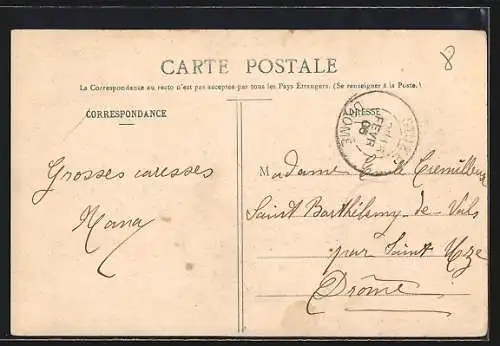 CARTE POSTALE
8
La Correspondance au recto n'est pas acceptée par tous les Pays Étrangers. (Se renseigner à la Poste.)
CORRESPONDANCE
ADRESSE
FEVR
06
DROME
Grosses caresses
Nana
Madame Emile Cremilleux
Saint Barthélemy-de-Vals
par Saint Uze
Drôme